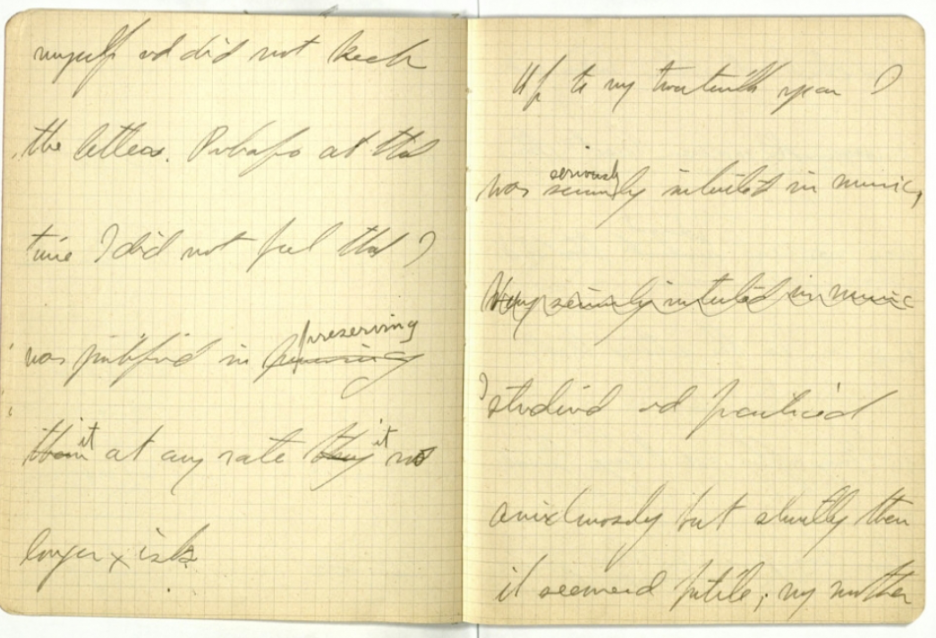 myself and did not keep
the letters. Perhaps at that
time I did not feel that I
was justified in preserving
them it at any rate they it no
longer exists
Up to my twentieth year I
was seriously interested in music,
Very seriously interested in music
I studied and practiced
assiduously but shortly then
it seemed futile; my mother